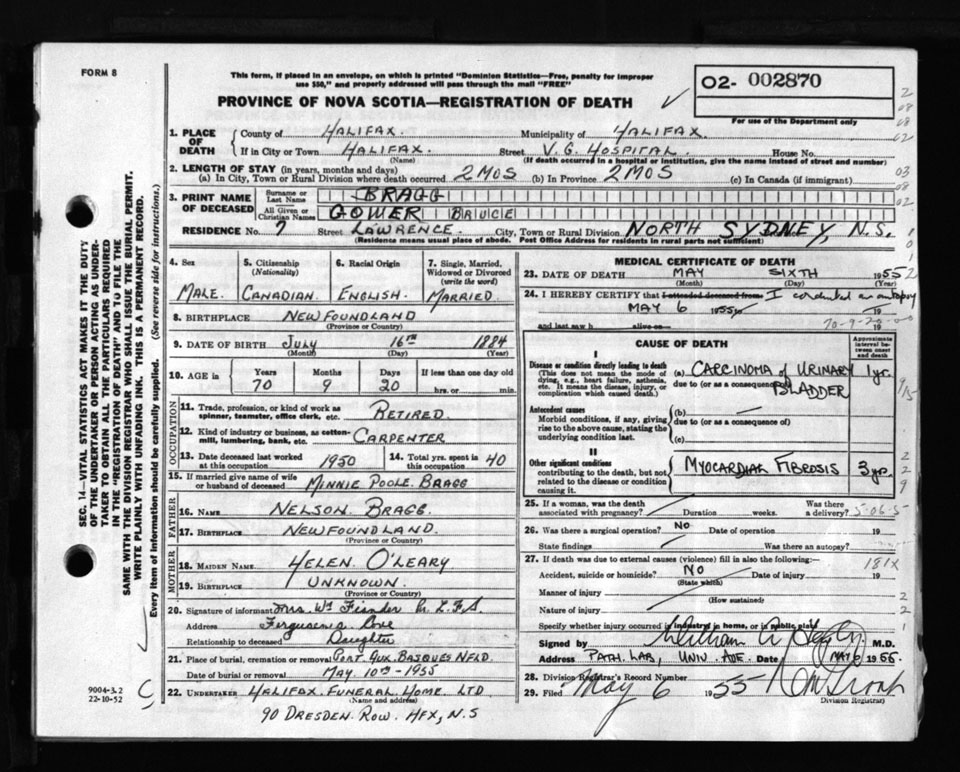 FORM 8
This form, if placed in an envelope, on which is printed "Dominion Statistics—Free, penalty for improper
use $50," and properly addressed will pass through the mail "FREE"
O2- 002870
For use of the Department only
PROVINCE OF NOVA SCOTIA—REGISTRATION OF DEATH
SEC. 14—VITAL STATISTICS ACT MAKES IT THE DUTY
OF THE UNDERTAKER OR PERSON ACTING AS UNDER-
TAKER TO OBTAIN ALL THE PARTICULARS REQUIRED
IN THE "REGISTRATION OF DEATH" AND TO FILE THE
SAME WITH THE DIVISION REGISTRAR WHO SHALL ISSUE THE BURIAL PERMIT.
WRITE PLAINLY WITH UNFADING INK. THIS IS A PERMANENT RECORD.
Every item of information should be carefully supplied. (See reverse side for instructions.)
1. PLACE OF DEATH County of HALIFAX. Municipality of HALIFAX.
If in City or Town HALIFAX. (Name) Street V.G. HOSPITAL. House No.
(If death occurred in a hospital or institution, give the name instead of street and number)
2. LENGTH OF STAY (in years, months and days)
(a) In City, Town or Rural Division where death occurred 2 MOS (b) In Province 2 MOS (c) In Canada (if immigrant)
3. PRINT NAME OF DECEASED Surname or Last Name BRAGG
All Given or Christian Names GOWER BRUCE
RESIDENCE No. 7 Street LAWRENCE. City, Town or Rural Division NORTH SYDNEY, N.S.
(Residence means usual place of abode. Post Office Address for residents in rural parts not sufficient)
4. Sex MALE. 5. Citizenship (Nationality) CANADIAN. 6. Racial Origin ENGLISH. 7. Single, Married, Widowed or Divorced (write the word) MARRIED.
8. BIRTHPLACE NEWFOUNDLAND
(Province or Country)
9. DATE OF BIRTH July 16th 1884
(Month) (Day) (Year)
10. AGE in Years 70 Months 9 Days 20 If less than one day old hrs. or min.
OCCUPATION
11. Trade, profession, or kind of work as spinner, teamster, office clerk, etc. RETIRED.
12. Kind of industry or business, as cotton-mill, lumbering, bank, etc. CARPENTER
13. Date deceased last worked at this occupation 1950 14. Total yrs. spent in this occupation 40
15. If married give name of wife or husband of deceased MINNIE POOLE. BRAGG
FATHER
16. NAME NELSON BRAGG.
17. BIRTHPLACE NEWFOUNDLAND.
(Province or Country)
MOTHER
18. MAIDEN NAME HELEN O'LEARY
19. BIRTHPLACE UNKNOWN.
(Province or Country)
20. Signature of informant Mrs. Wm Fiander
Address Fergusons Cove
Relationship to deceased Daughter
21. Place of burial, cremation or removal PORT AUX. BASQUES NFLD.
Date of burial or removal MAY 10TH - 1955
22. UNDERTAKER HALIFAX. FUNERAL HOME. LTD
(Name and address)
90 DRESDEN. ROW. HFX, N.S
9004-3.2
22-10-52
MEDICAL CERTIFICATE OF DEATH
23. DATE OF DEATH MAY SIXTH 1955
(Month) (Day) (Year)
24. I HEREBY CERTIFY that I attended deceased from I conducted an autopsy
MAY 6 1955 19
and last saw h alive on 19
70-9-20-00
CAUSE OF DEATH
Approximate interval between onset and death
I
Disease or condition directly leading to death
(This does not mean the mode of dying, e.g., heart failure, asthenia, etc. It means the disease, injury, or complication which caused death.)
(a) CARCINOMA of URINARY BLADDER 1 yr.
due to (or as a consequence of)
Antecedent causes
Morbid conditions, if any, giving rise to the above cause, stating the underlying condition last.
(b) —
due to (or as a consequence of)
(c)
II
Other significant conditions
contributing to the death, but not related to the disease or condition causing it.
MYOCARDIAL FIBROSIS 3 yr.
25. If a woman, was the death associated with pregnancy? Duration weeks. Was there a delivery?
26. Was there a surgical operation? NO Date of operation 19
State findings Was there an autopsy?
27. If death was due to external causes (violence) fill in also the following:—
181X
Accident, suicide or homicide? NO Date of injury 19
(State which)
Manner of injury
(How sustained)
Nature of injury
Specify whether injury occurred in industry, in home, or in public place
Signed by M.D.
Address PATH. LAB, UNIV. AVE. Date MAY 6 1955.
28. Division Registrar's Record Number
29. Filed May 6 1955
Division Registrar)